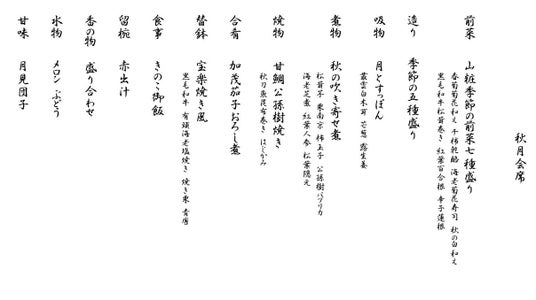 秋月会席
前菜 山粧季節の前菜七種盛り
春菊菊花和え 干柿乾酪 海老菊花寿司 秋の白和え
黒毛和牛松茸巻き 紅葉百合根 辛子蓮根
造り 季節の五種盛り
吸物 月とすっぽん
叢雲白木耳 芯葱 露生姜
煮物 秋の吹き寄せ煮
松茸子 東南京 柿玉子 公孫樹パプリカ
海老芝煮 紅葉人参 松葉隠元
焼物 甘鯛公孫樹焼き
秋刀魚昆布巻き はじかみ
合肴 加茂茄子おろし煮
替鉢 宝楽焼き風
黒毛和牛 有頭海老塩焼き 焼き栗 青唐
食事 きのこ御飯
留椀 赤出汁
香の物 盛り合わせ
水物 メロン ぶどう
甘味 月見団子